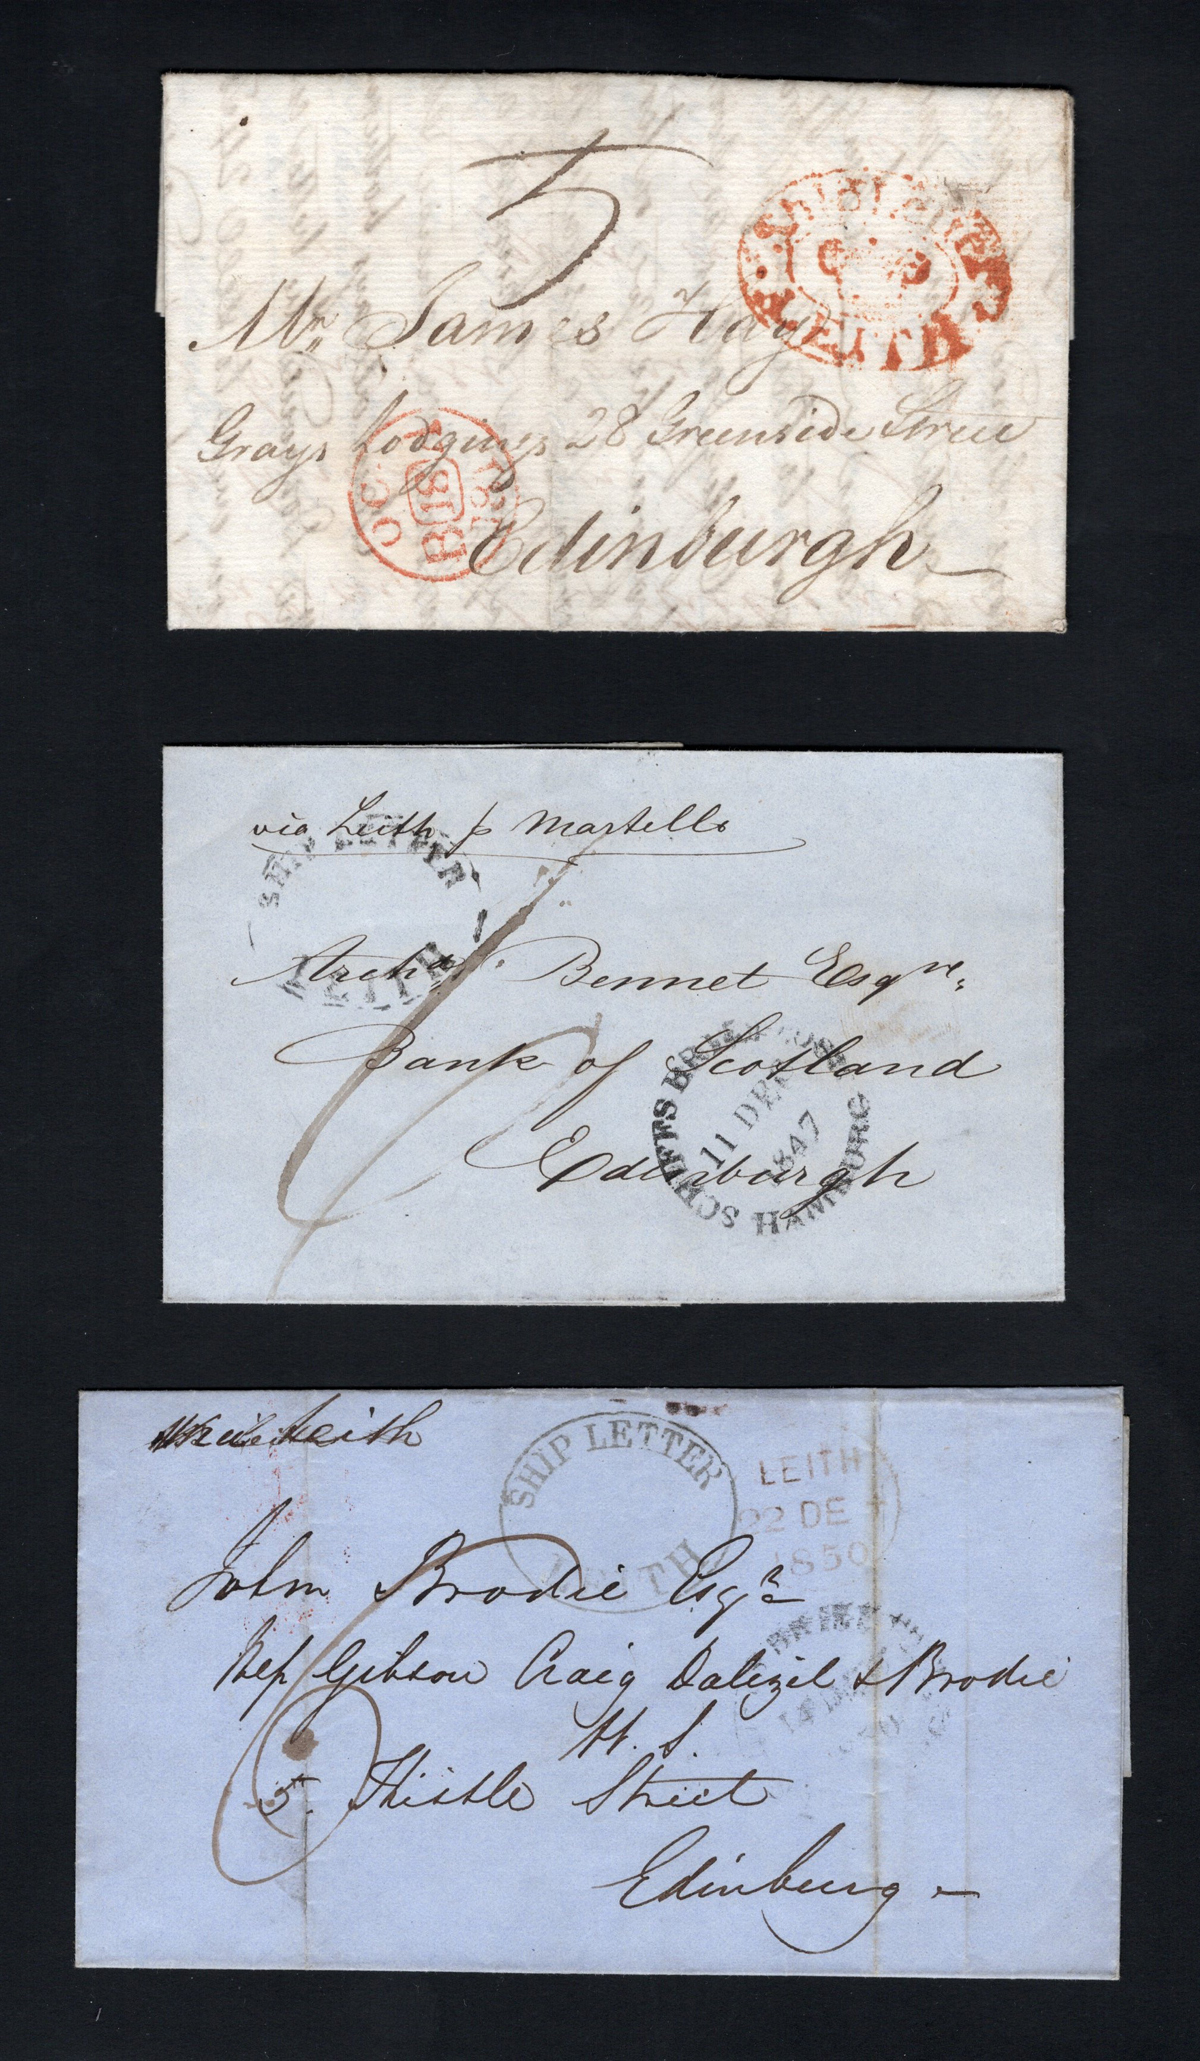 5
SHIP LETTER
LEITH
Mr. James Hay
Grays Lodgings 28 Greenside Street
OC
B 18
Edinburgh
via Leith p Martello
SHIP LETTER
LEITH
Archd. Bennet Esqre.
Bank of Scotland
Edinburgh
SCHIFFS BRIEF POST
11 DEC
1847
HAMBURG
Leith
SHIP LETTER
LEITH
LEITH
22 DE
1850
John Brodie Esqr
Gibson Craig Dalziel & Brodie
W. S.
BRIEF
5 Thistle Street
Edinburg